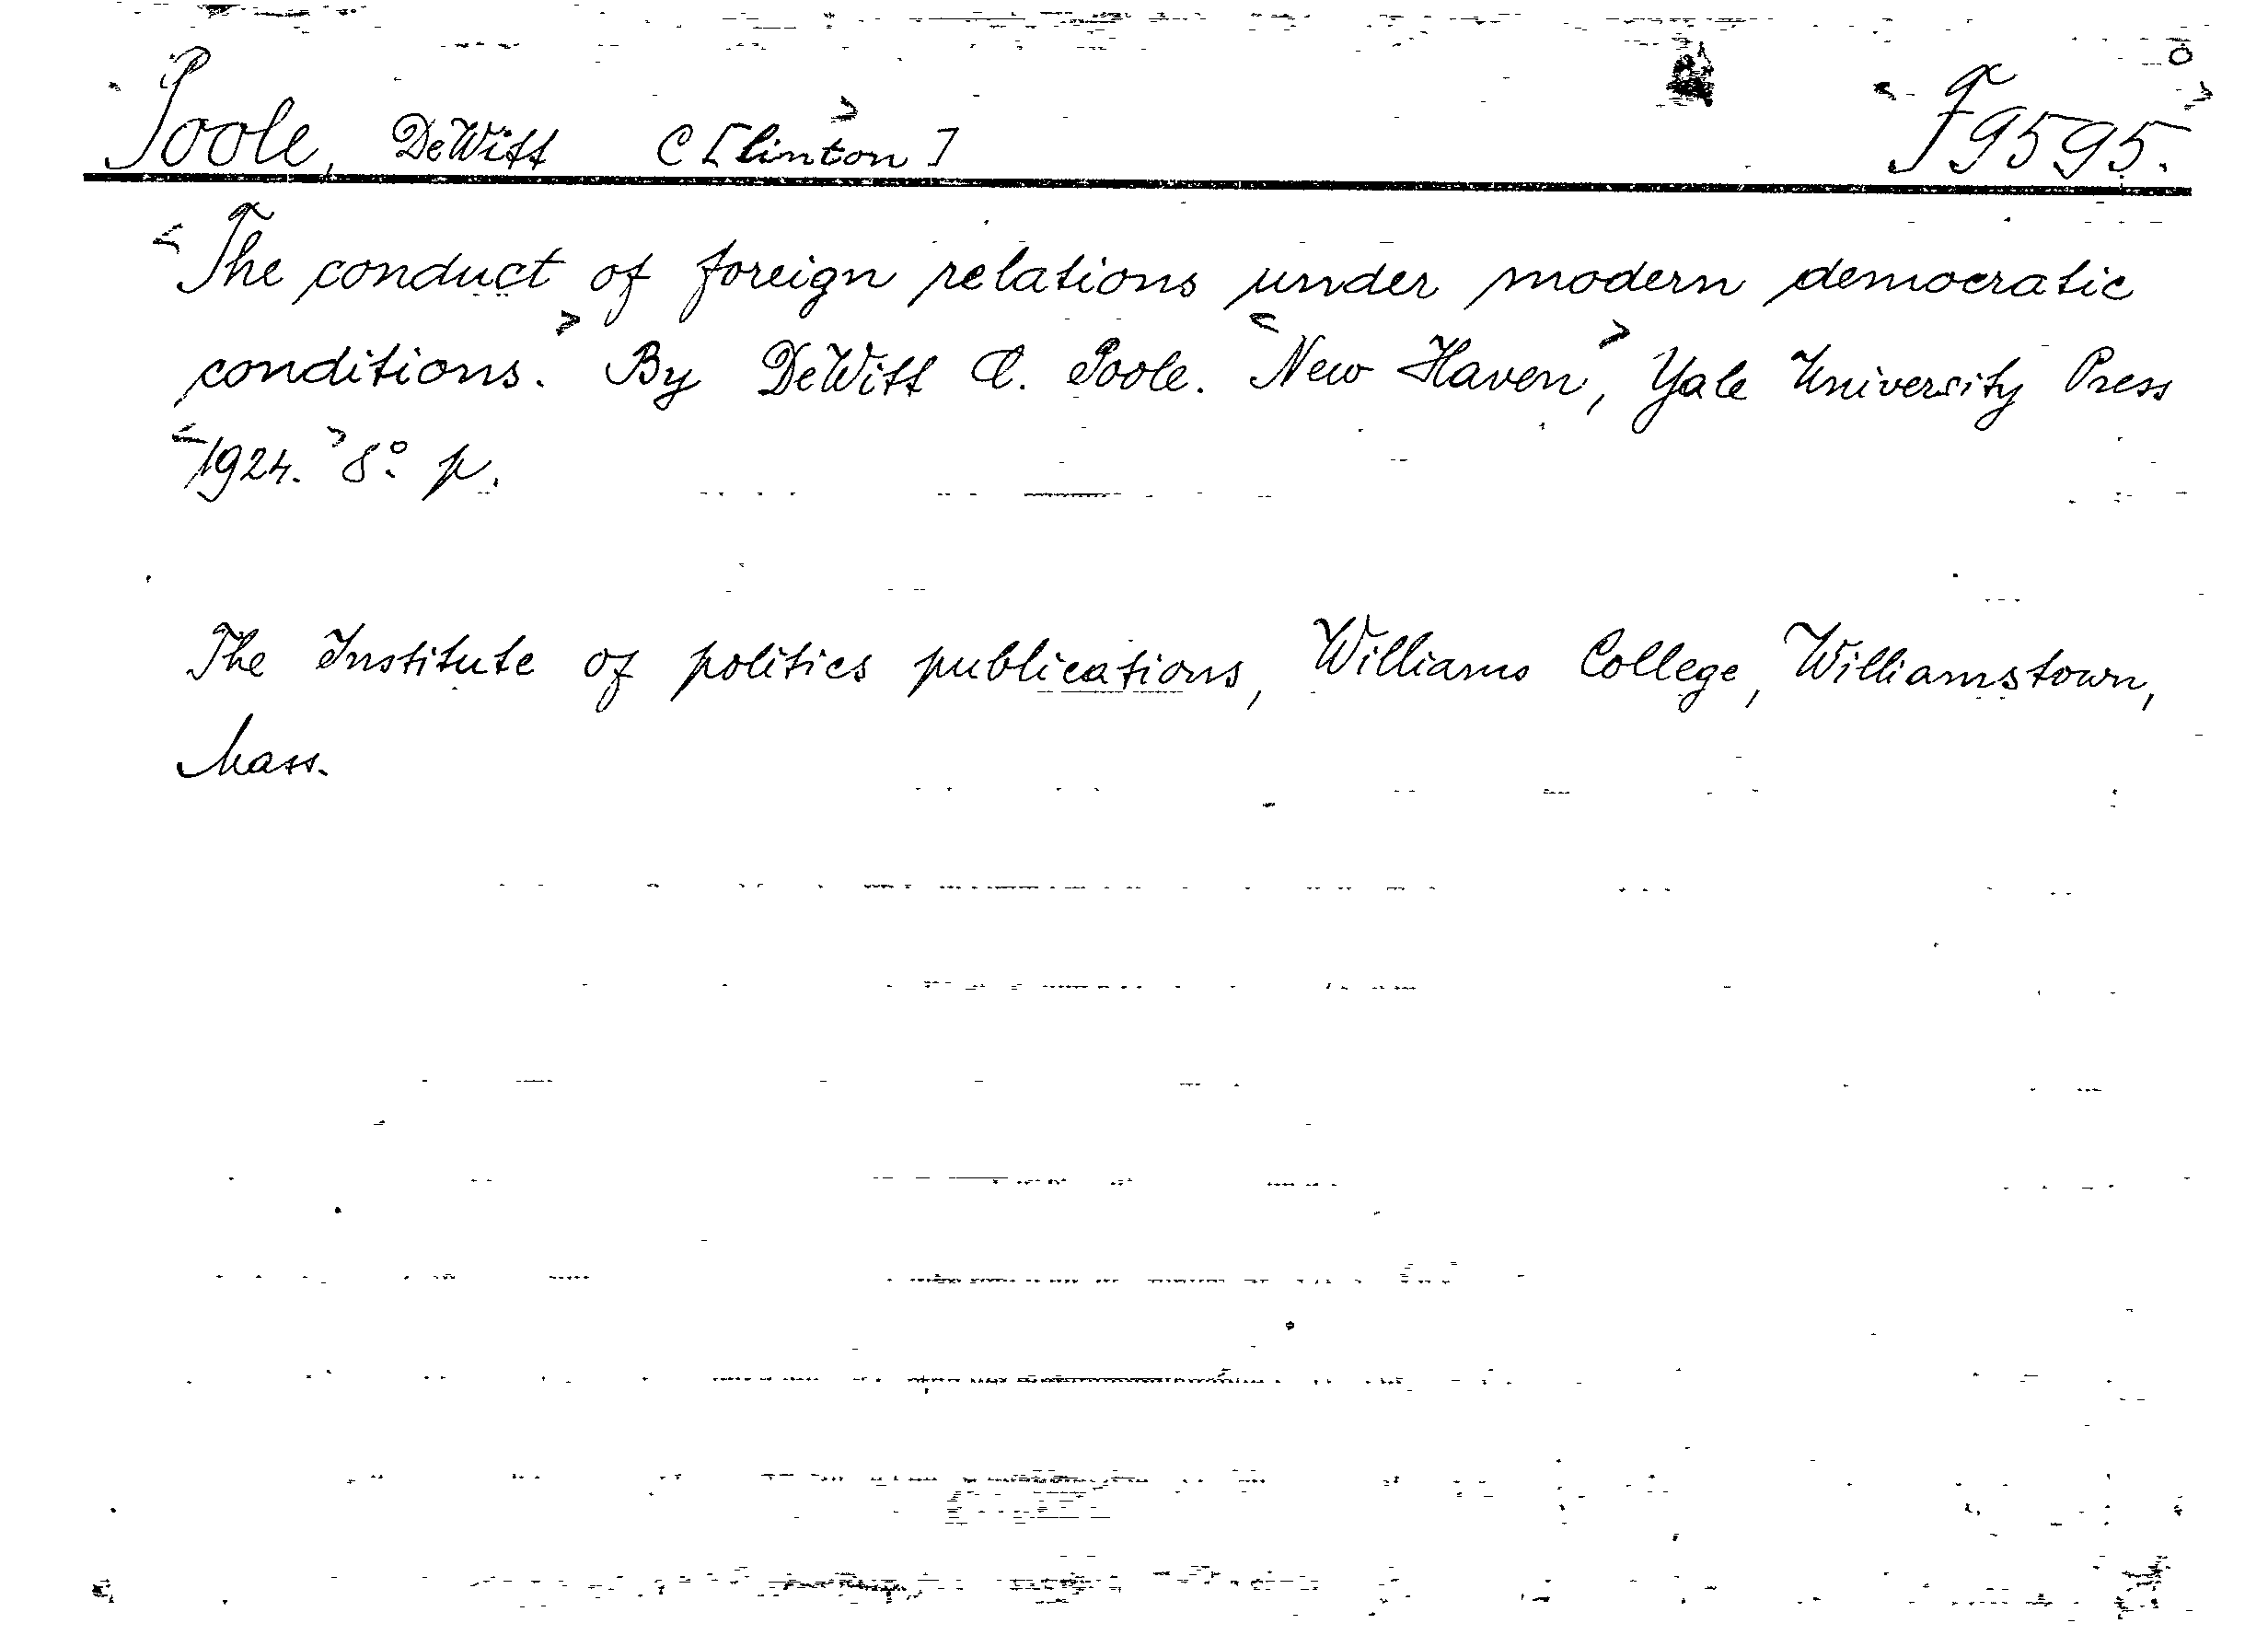 <Poole, DeWitt C[linton]> <F9595.>
<The conduct of foreign relations under modern democratic
conditions.> By DeWitt C. Poole. <New Haven>, Yale University Press
<1924.> 8° p.
The Institute of politics publications, Williams College, Williamstown,
Mass.